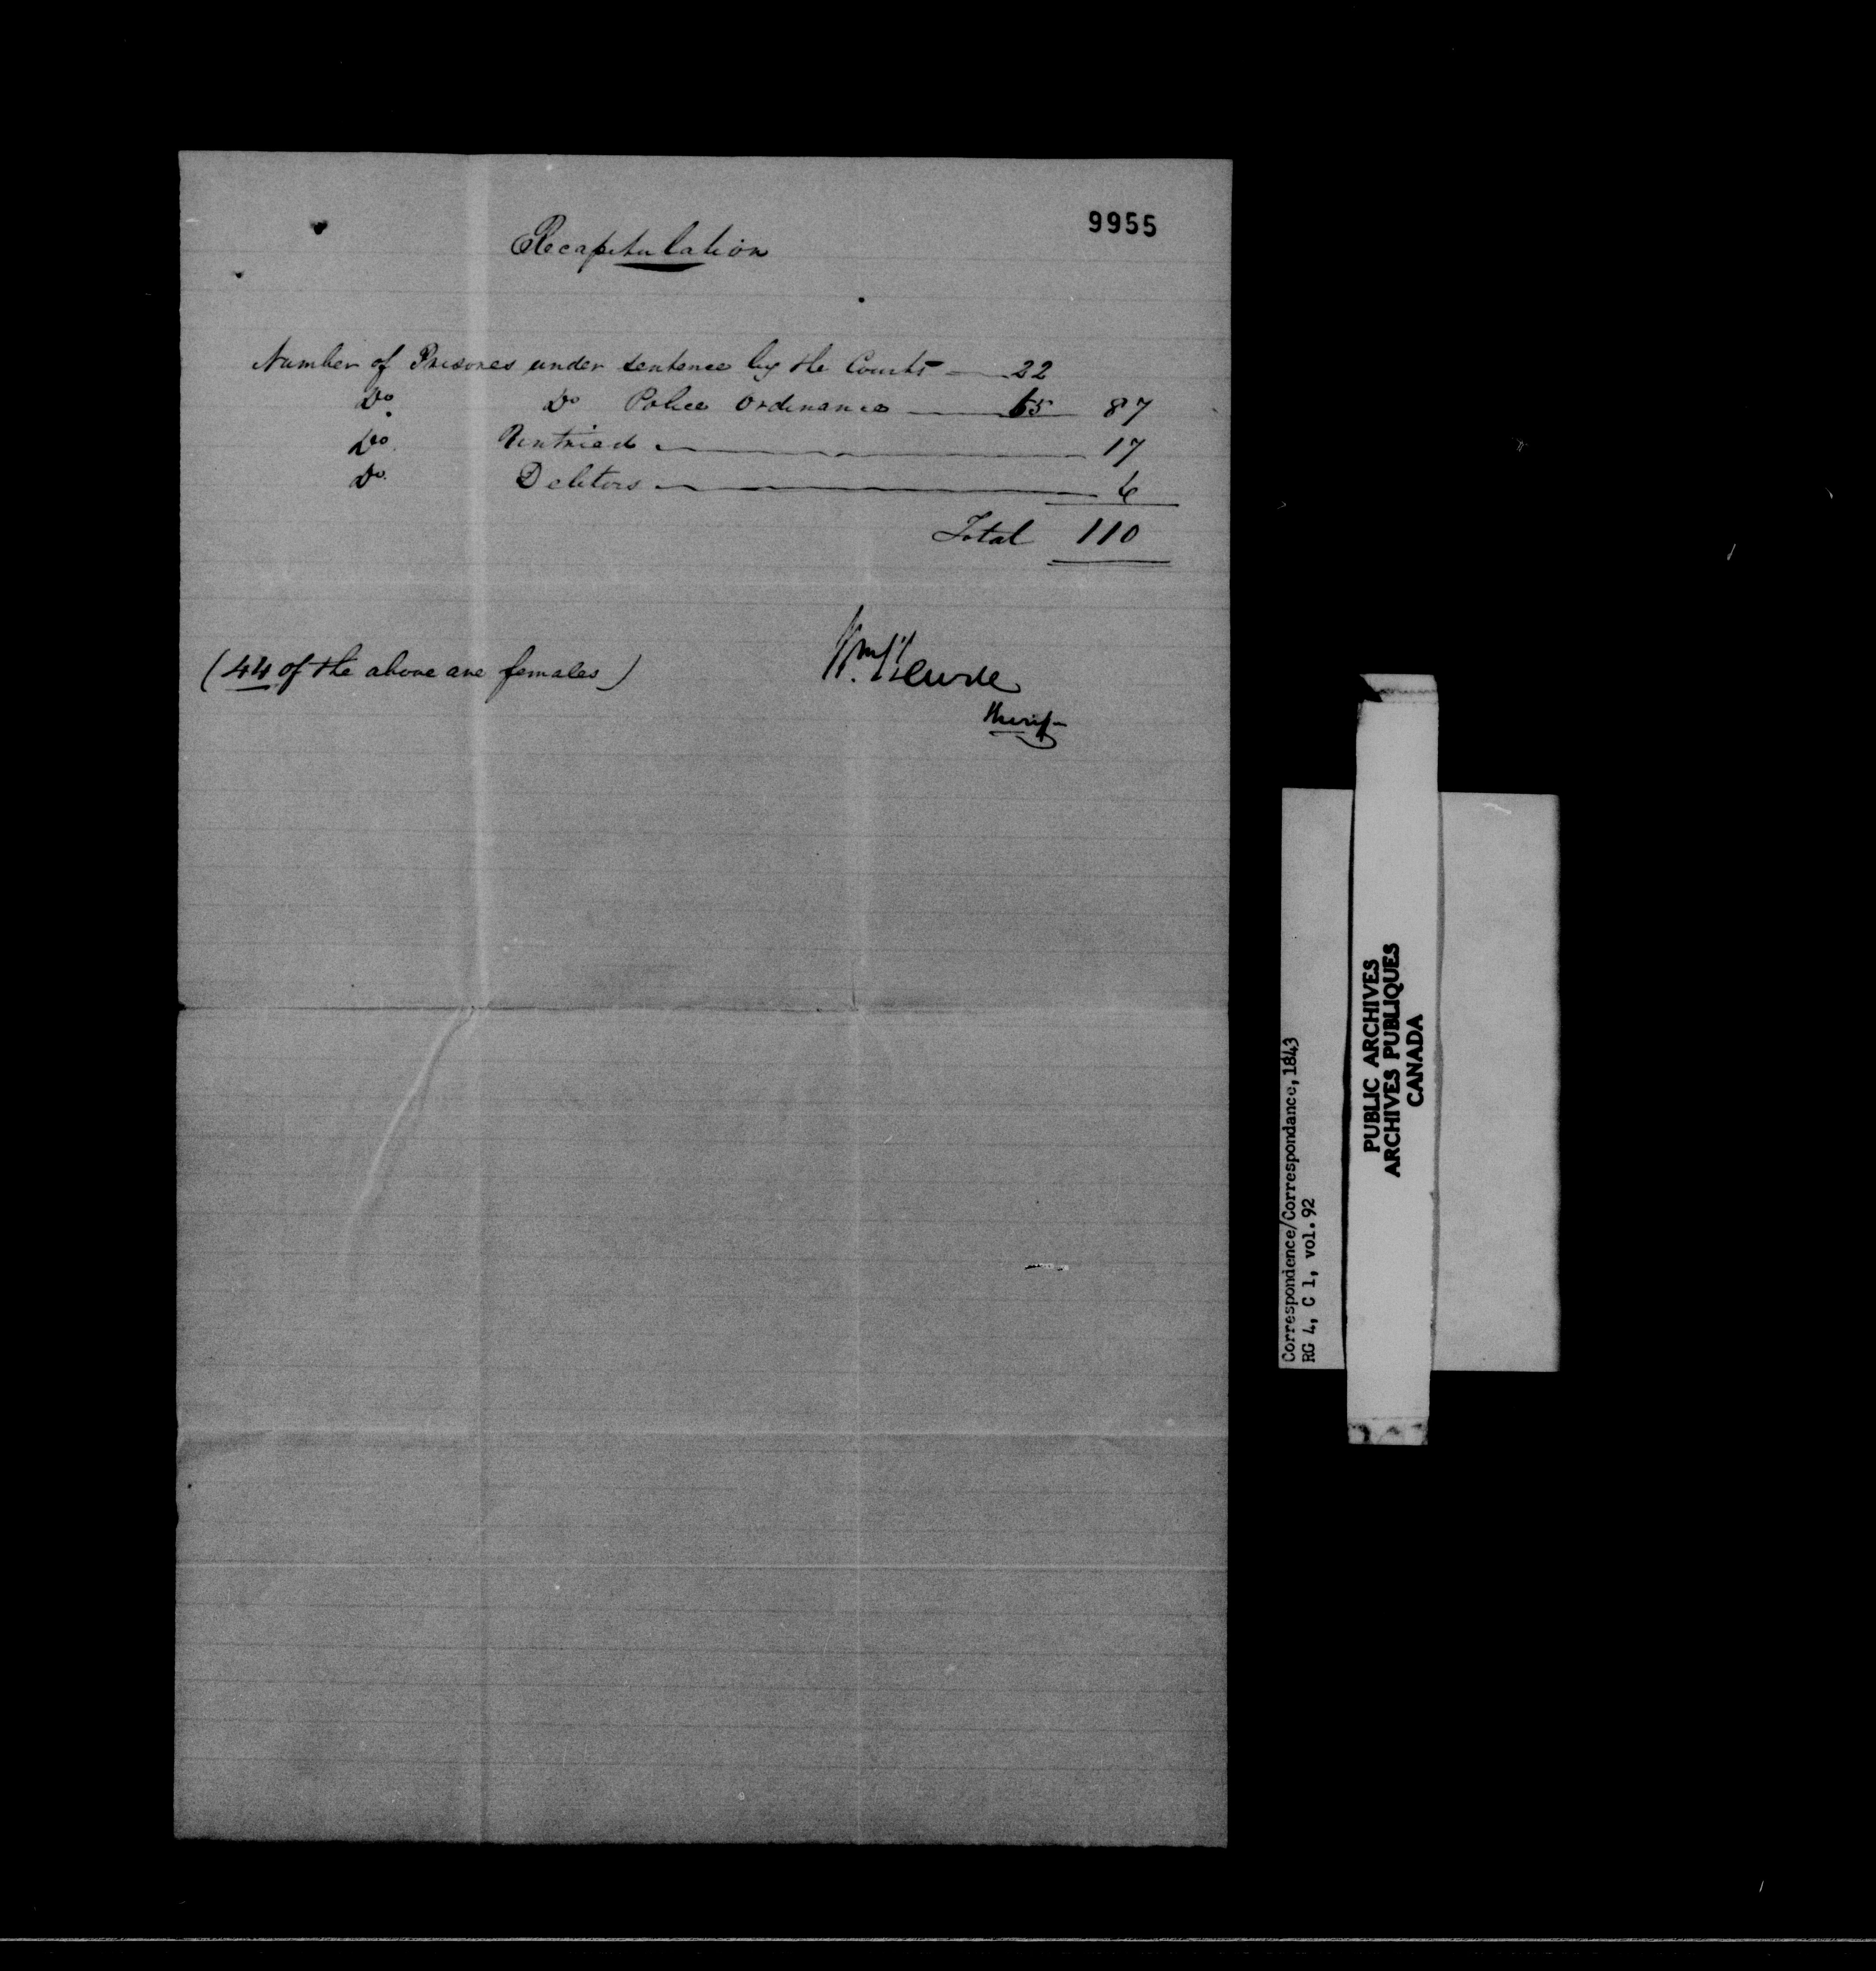 9955
Recapitulation
Number of Prisones under sentence by the Courts 22
Do Do Police Ordinance 65 87
Do. Untried 17
Do. Debtors 6
Total 110
(44 of the above are females)
Wm
Sheriff
Correspondence/Correspondance, 1843
RG 4, C 1, vol. 92
PUBLIC ARCHIVES
ARCHIVES PUBLIQUES
CANADA